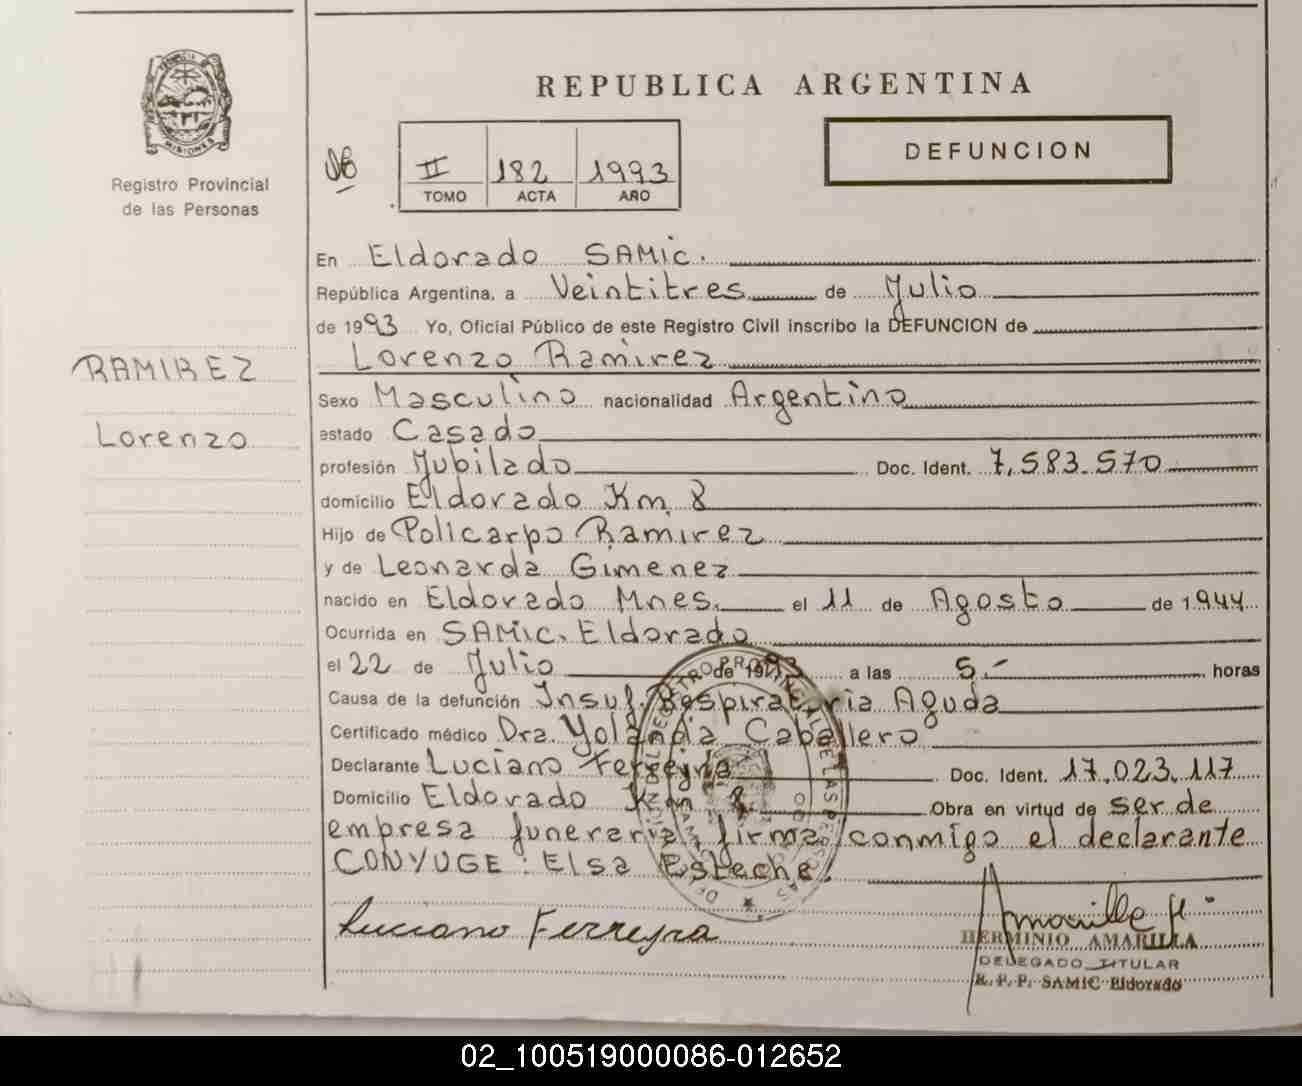 PROVINCIA DE
MISIONES
Registro Provincial
de las Personas
RAMIREZ
Lorenzo
REPUBLICA ARGENTINA
DEFUNCION
II 182 1993
TOMO ACTA AÑO
En Eldorado SAMic.
República Argentina, a Veintitres de Julio
de 1993 Yo, Oficial Público de este Registro Civil inscribo la DEFUNCION de
Lorenzo Ramirez
Sexo Masculino nacionalidad Argentino
estado Casado
profesión Jubilado Doc. Ident. 7.583.570
domicilio Eldorado Km 8
Hijo de Policarpo Ramirez
y de Leonarda Gimenez
nacido en Eldorado Mnes. el 11 de Agosto de 1.944
Ocurrida en SAMic. Eldorado
el 22 de Julio de 1993 a las 5.- horas
Causa de la defunción Insuf. Respiratoria Aguda
Certificado médico Dra. Yolanda Caballero
Declarante Luciano Ferreyra Doc. Ident. 17.023.117
Domicilio Eldorado Km 8 Obra en virtud de ser de
empresa funeraria firma conmigo el declarante
CONYUGE: Elsa Esteche.
Luciano Ferreyra
Amarilla H
HERMINIO AMARILLA
DELEGADO TITULAR
R. P. P. SAMIC Eldorado
02_100519000086-012652